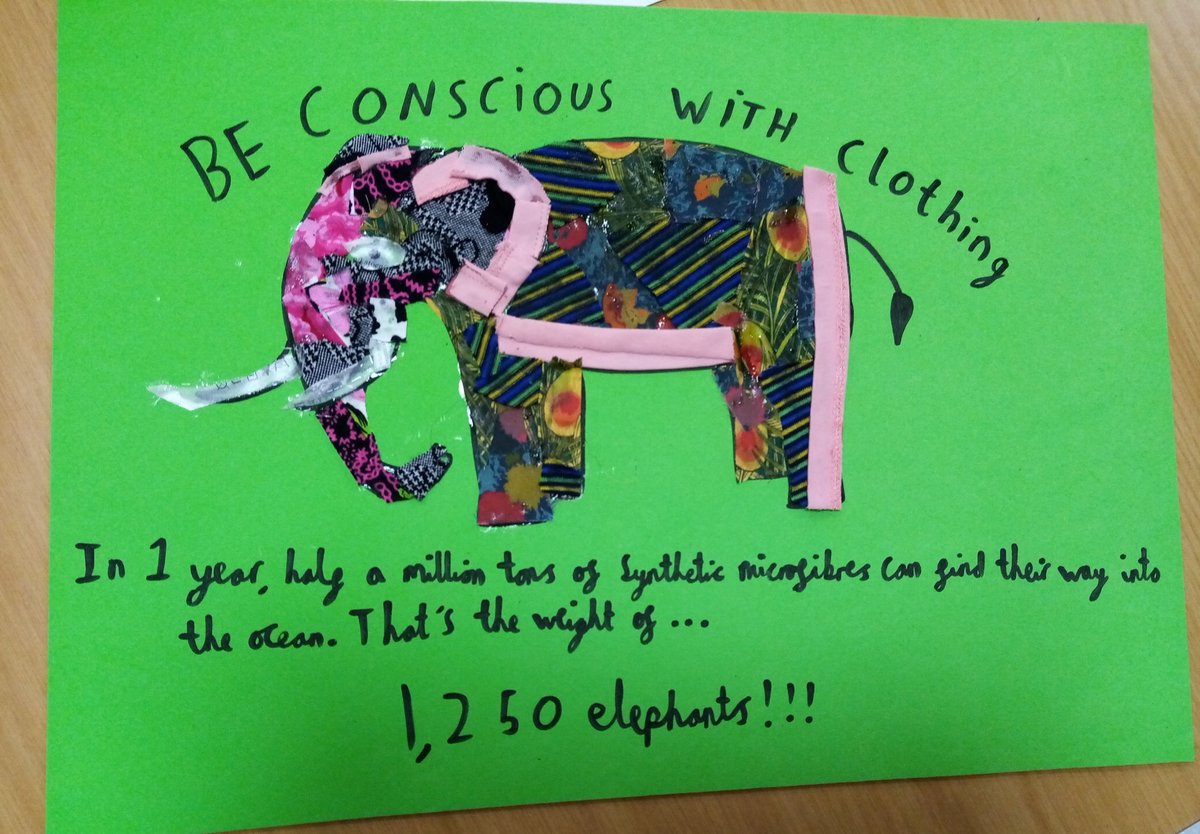 BE CONSCIOUS WITH Clothing
In 1 year, half a million tons of Synthetic microfibres can find their way into
the ocean. That's the weight of...
1,250 elephants!!!